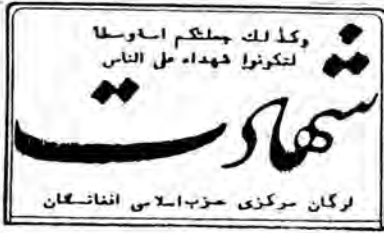 وكذلك جعلنكم امة وسطا
لتكونوا شهداء على الناس
شهادت
ارگان مرکزی حزب اسلامی افغانستان